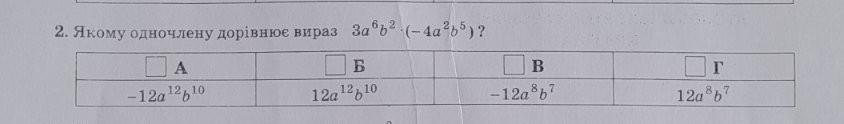 2. Якому одночлену дорівнює вираз 3a⁶b² · (−4a²b⁵)?
А Б В Г
−12a¹²b¹⁰ 12a¹²b¹⁰ −12a⁸b⁷ 12a⁸b⁷